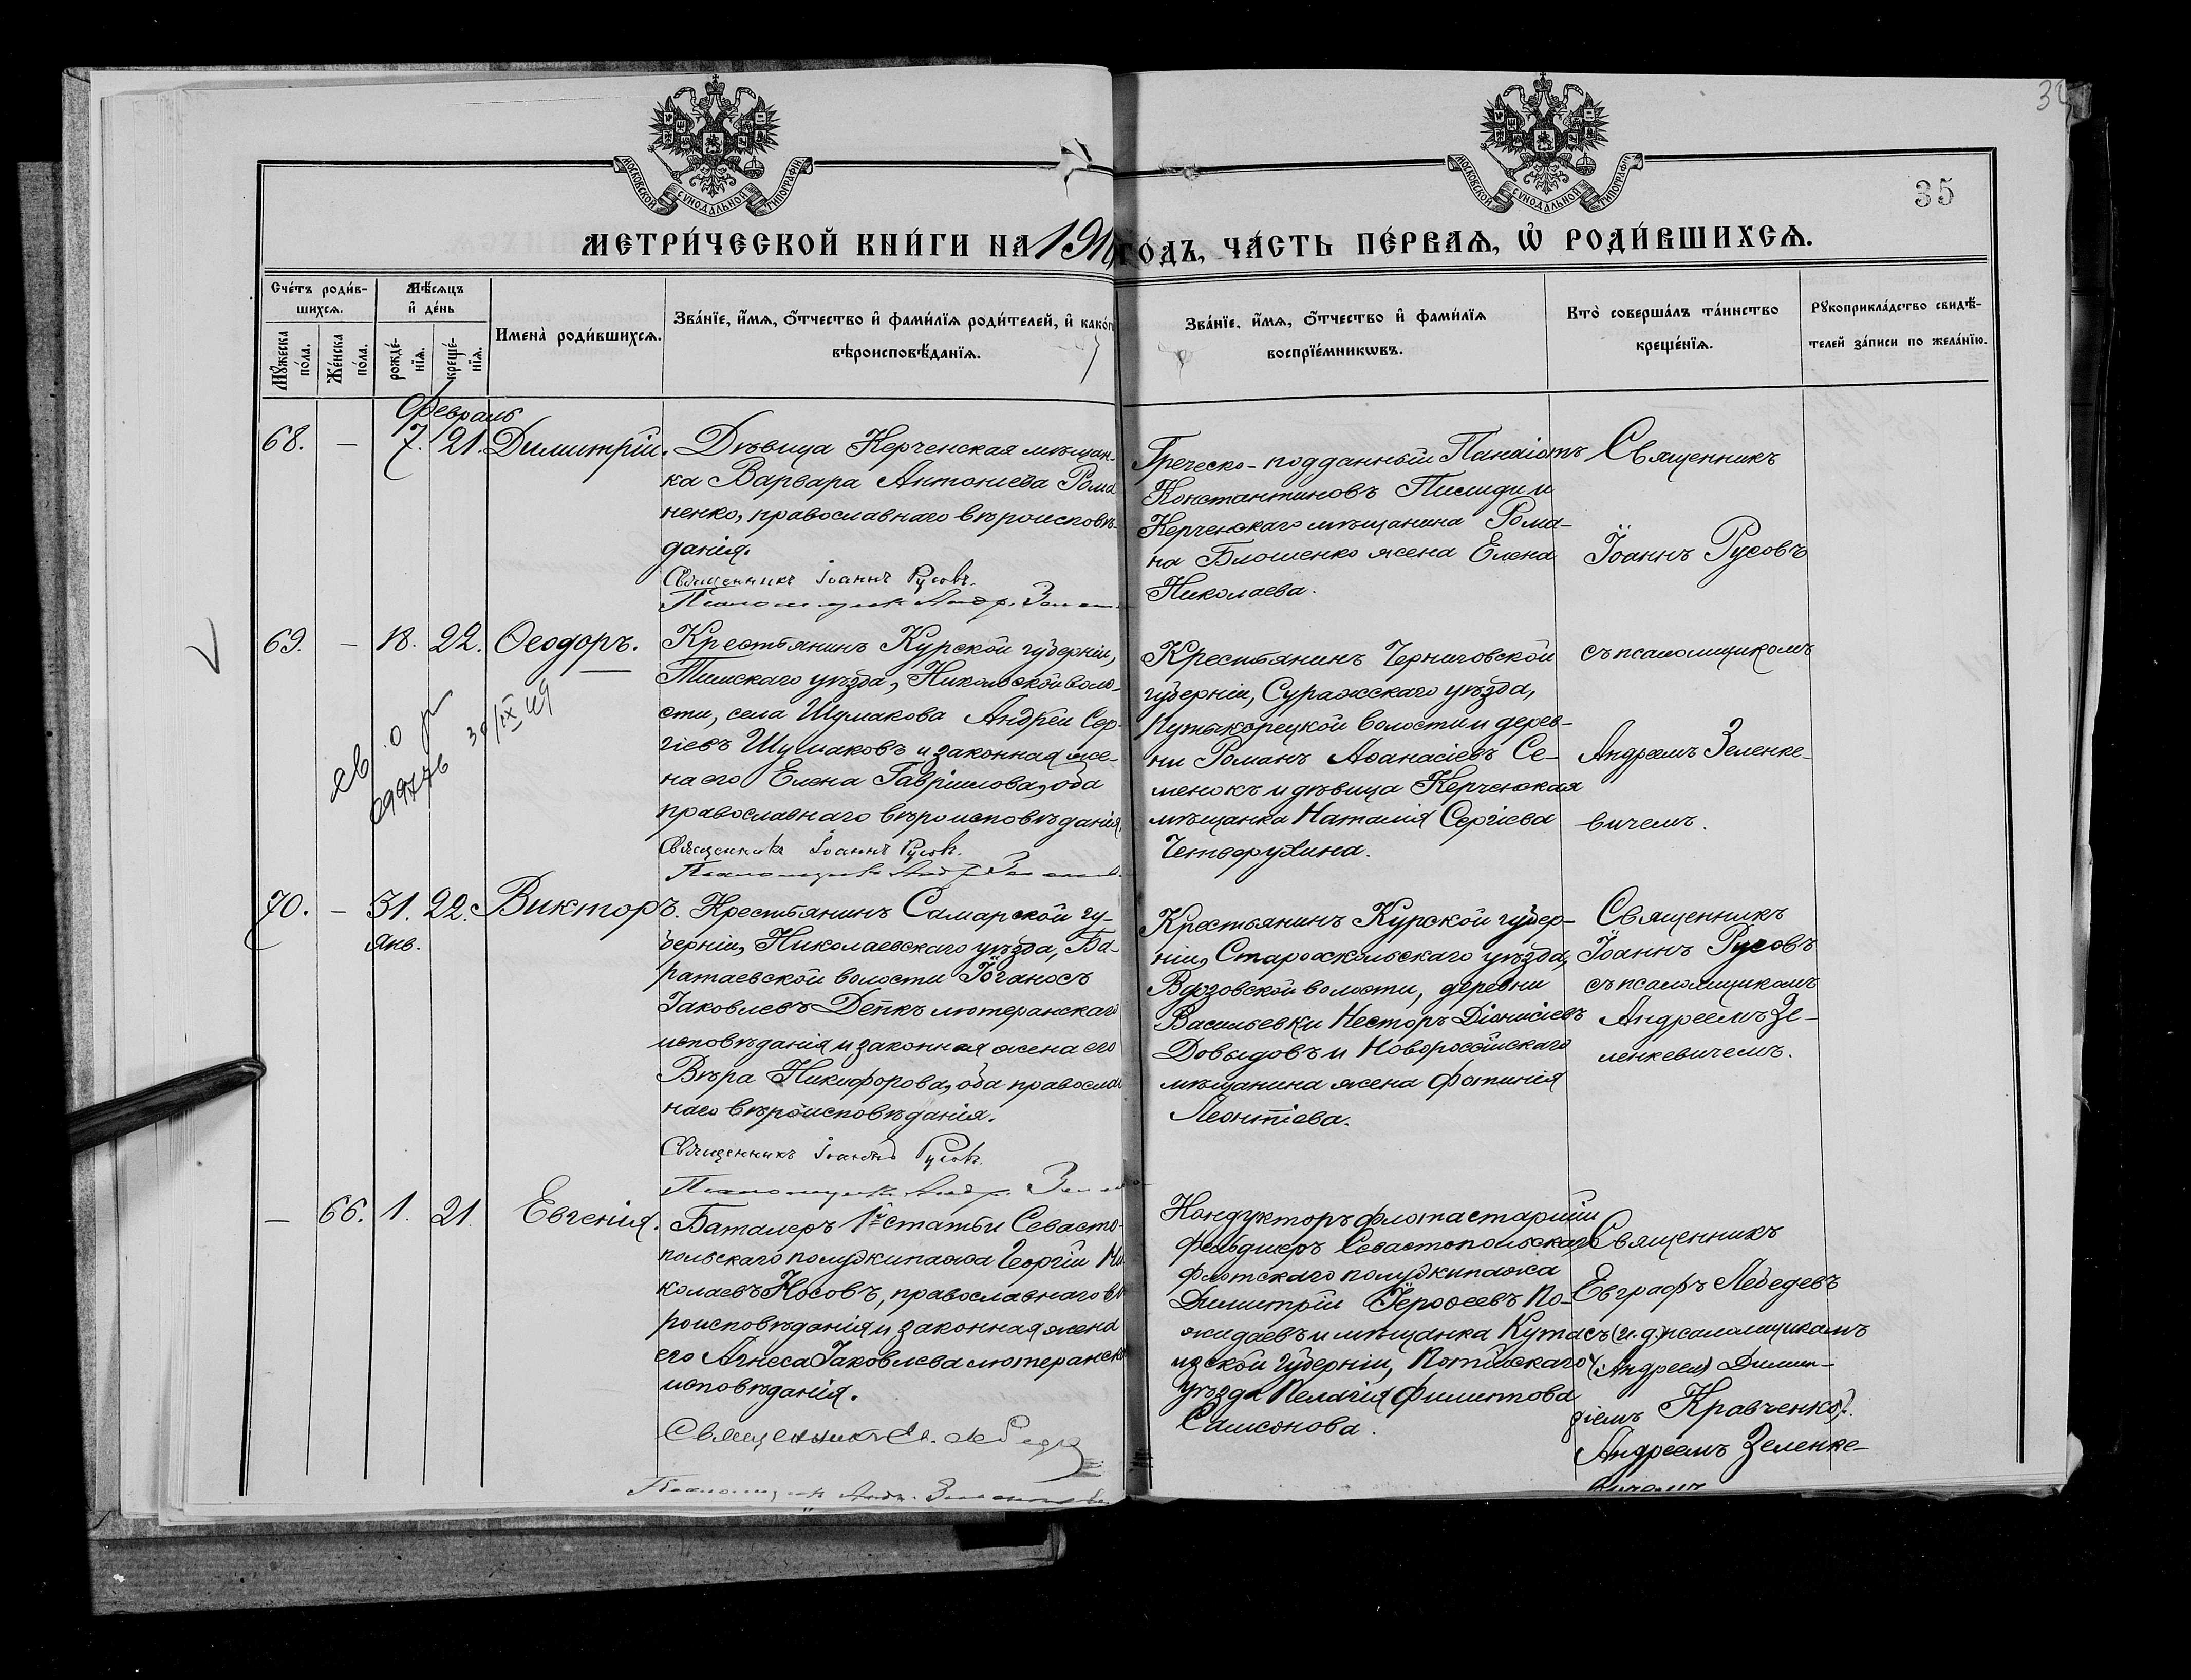 МОСКОВСКОЙ СѴНОДАЛЬНОЙ ТИПОГРАФІИ
МОСКОВСКОЙ СѴНОДАЛЬНОЙ ТИПОГРАФІИ
35
МЕТРИ́ЧЕСКОЙ КНИ́ГИ НА 191 ГО́ДЪ, ЧА́СТЬ ПЕ́РВАѦ, Ѡ҆ РОДИ́ВШИХСѦ.
Сче́тъ роди́в-
шихсѧ.
Мꙋ́жеска по́ла.
Же́нска по́ла.
Мѣ́сѧцъ
и҆ де́нь
рожде́-нїѧ.
креще́-нїѧ.
Имена̀ роди́вшихсѧ.
Зва́нїе, и҆́мѧ, ѻ҆́тчество и҆ фами́лїѧ роди́телей, и҆ како́гѡ
вѣроисповѣ́данїѧ.
Зва́нїе, и҆́мѧ, ѻ҆́тчество и҆ фами́лїѧ
воспрїе́мникѡвъ.
Кто̀ соверша́лъ та́инство
креще́нїѧ.
Рꙋкоприкла́дство свидѣ́-
телей за́писи по жела́нїю.
Февраль
68. — 7. 21. Димитрій. Дѣвица Керченская мѣщан-
ка Варвара Антониева Рома
ненко, православнаго вѣроисповѣ-
данія.
Священникъ Іоаннъ Русовъ.
Псаломщикъ Андр.
Греческо-подданный Панаіотъ
Константиновъ и
Керченскаго мѣщанина Рома-
на Блошенко жена Елена
Николаева.
Священникъ
Іоаннъ Русовъ
69. — 18. 22. Ѳеодоръ. Крестьянинъ Курской губерніи,
Тимскаго уѣзда, Никольской воло-
сти, села Шумакова Андрей Сер-
гіевъ Шумаковъ и законная же-
на его Елена Гавріилова, оба
православнаго вѣроисповѣданія.
Священникъ Іоаннъ Русовъ.
Псаломщикъ Андр.
Крестьянинъ Черниговской
губерніи, Суражскаго уѣзда,
волости и дерев-
ни Романъ Аѳанасіевъ Се-
менокъ и дѣвица Керченская
мѣщанка Наталія Сергіева
Четверухина.
съ псаломщикомъ
Андреемъ Зеленке-
вичемъ.
70. — 31. 22. Викторъ. Крестьянинъ Самарской гу-
янв.
берніи, Николаевскаго уѣзда, Ба-
ратаевской волости Іоганосъ
Іаковлевъ Депкъ лютеранскаго
исповѣданія и законная жена его
Вѣра Никифорова, оба православ
наго вѣроисповѣданія.
Священникъ Іоаннъ Русовъ.
Псаломщикъ Андр.
Крестьянинъ Курской губер-
ніи, Старооскольскаго уѣзда,
волости, деревни
Васильевки Несторъ Діонисіевъ
Довыдовъ и Новороссійскаго
мѣщанина жена Фотинія
Леонтіева.
Священникъ
Іоаннъ Русовъ
съ псаломщикомъ
Андреемъ Зе-
ленкевичемъ.
— 66. 1. 21. Евгенія. Баталеръ 1й статьи Севасто-
польскаго полуэкипажа Георгій Ни
колаевъ Носовъ, православнаго вѣ
роисповѣданія и законная жена
его Агнеса Іаковлева лютеранск
исповѣданія.
Священникъ Ев. Лебедев
Псаломщикъ Андр.
Кондукторъ флота старшій
фельдшеръ Севастопольскаго
флотскаго полуэкипажа
Димитрій Іероѳеевъ По-
жидаевъ и мѣщанка Кута
изской губерніи, Потійскаго
уѣзда Пелагія Филиппова
Самсонова.
Священникъ
Евграфъ Лебедевъ
съ (и.д.) псаломщикомъ
(Андреем) Димит-
ріемъ Кравченко).
Андреемъ Зеленке-
вичемъ